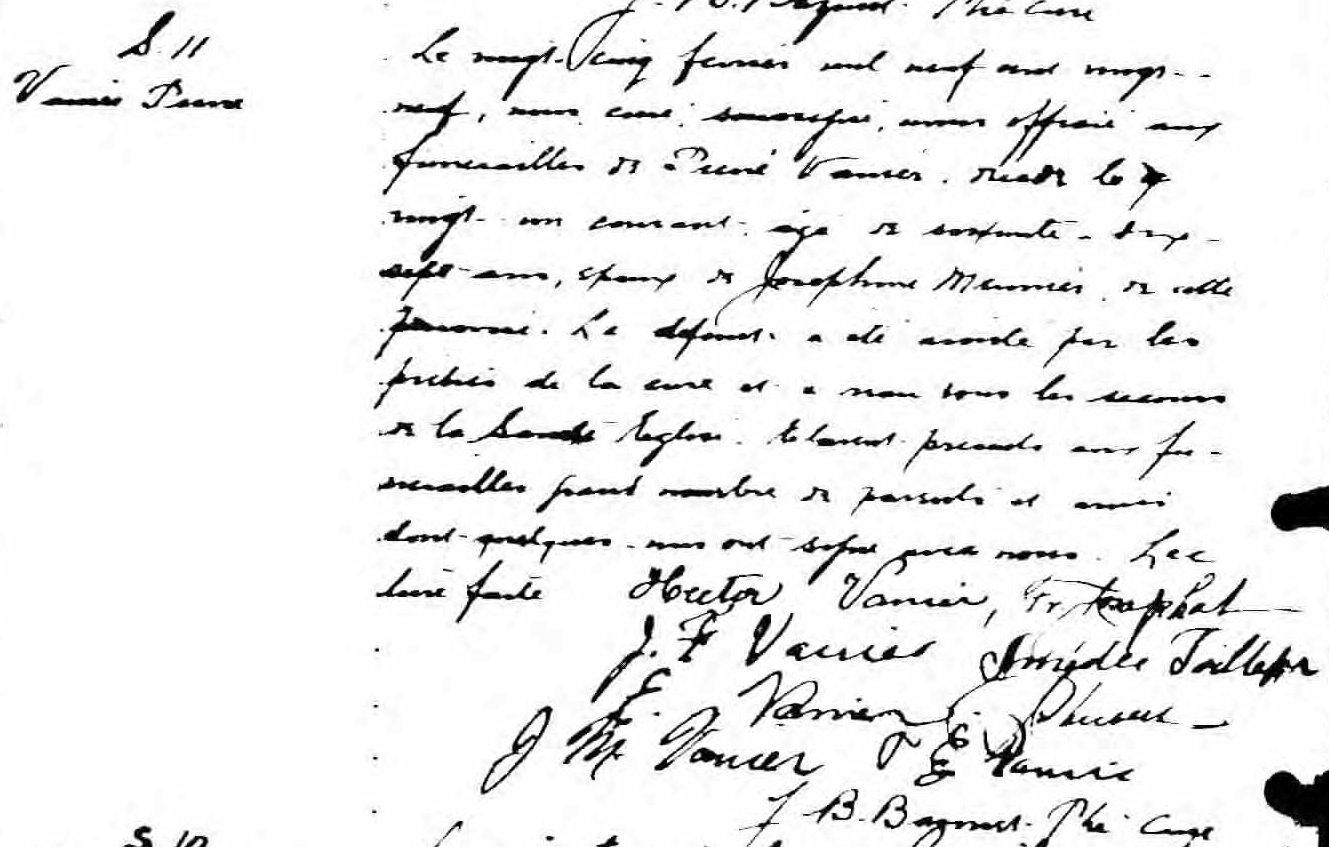 S. 11
Vanier Pierre
Le vingt-cinq fevrier mil neuf cent vingt-
neuf, nous, curé, soussigné, avons officié aux
funerailles de Pierre Vanier, decede le
vingt-un courant, âgé de soixante-dix-
sept ans, epoux de Josephine Meunier, de cette
paroisse. Le defunt a ete assiste par les
pretres de la cure et a reçu tous les secours
de la Sainte Eglise. Etaient presents aux fu-
nerailles grand nombre de parents et amis
dont quelques-uns ont signé avec nous. Lec
ture faite Hector Vanier, Fr. Josaphat
J. F Vanier Amédée Taillefer
E. Vanier
J M. Vanier J E Vanier
J B. Bazinet Ptre Curé
S.